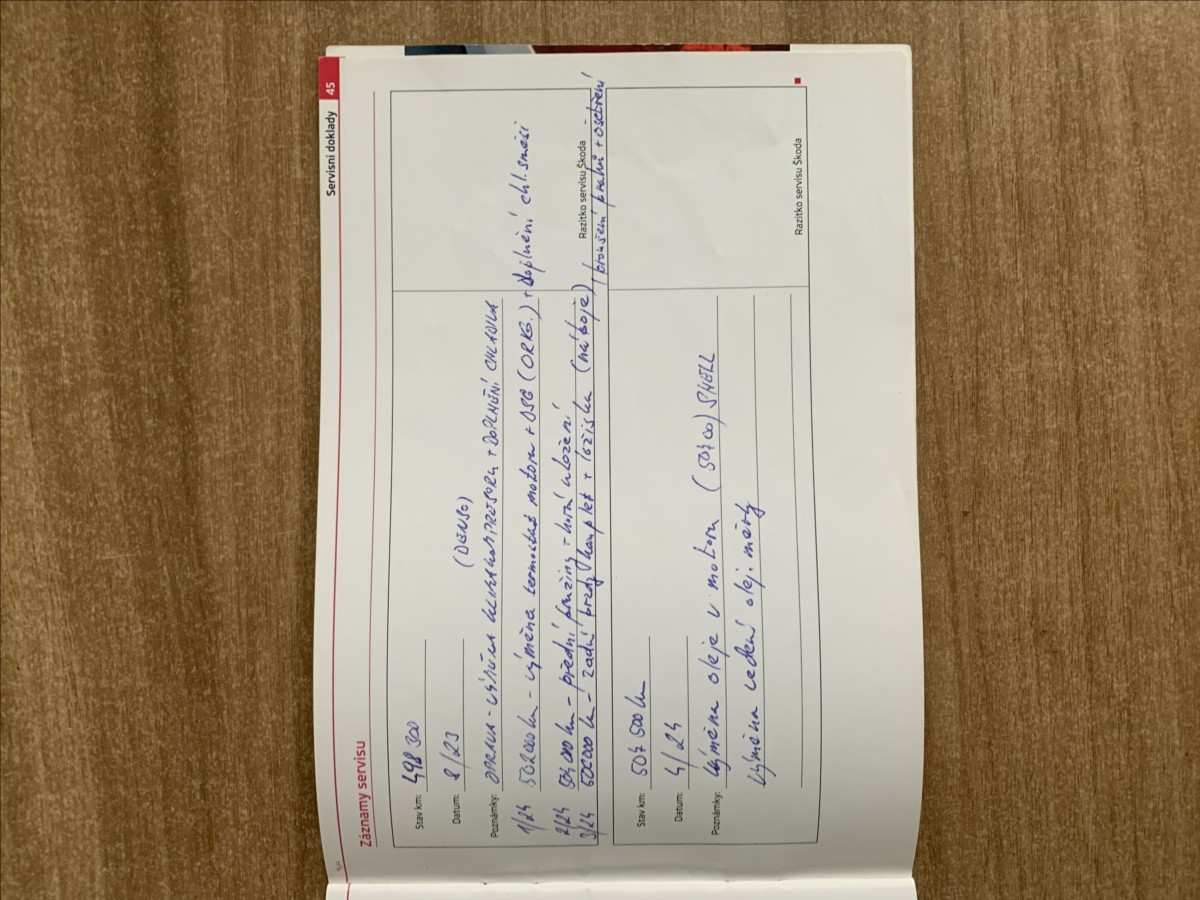 Servisní doklady 45
Záznamy servisu
Stav km: 498 300
Datum: 8/23 (DENSO)
Poznámky: OPRAVA - VÝMĚNA KLIMAKOMPRESORU + DOPLNĚNÍ CHLADIVA
1/24 502000 km - výměna termostat motoru + DSG (ORIG.) + doplnění chl. směsi
2/24 504 000 km - přední pružiny + horní uložení
3/24 - zadní brzdy komplet + ložiska (náboje), broušení prahů + ošetření
Razítko servisu Škoda
Stav km: 507 500 km
Datum: 4/24
Poznámky: Výměna oleje v motoru (507 00) SHELL
Výměna vedení olej. měrky
Razítko servisu Škoda